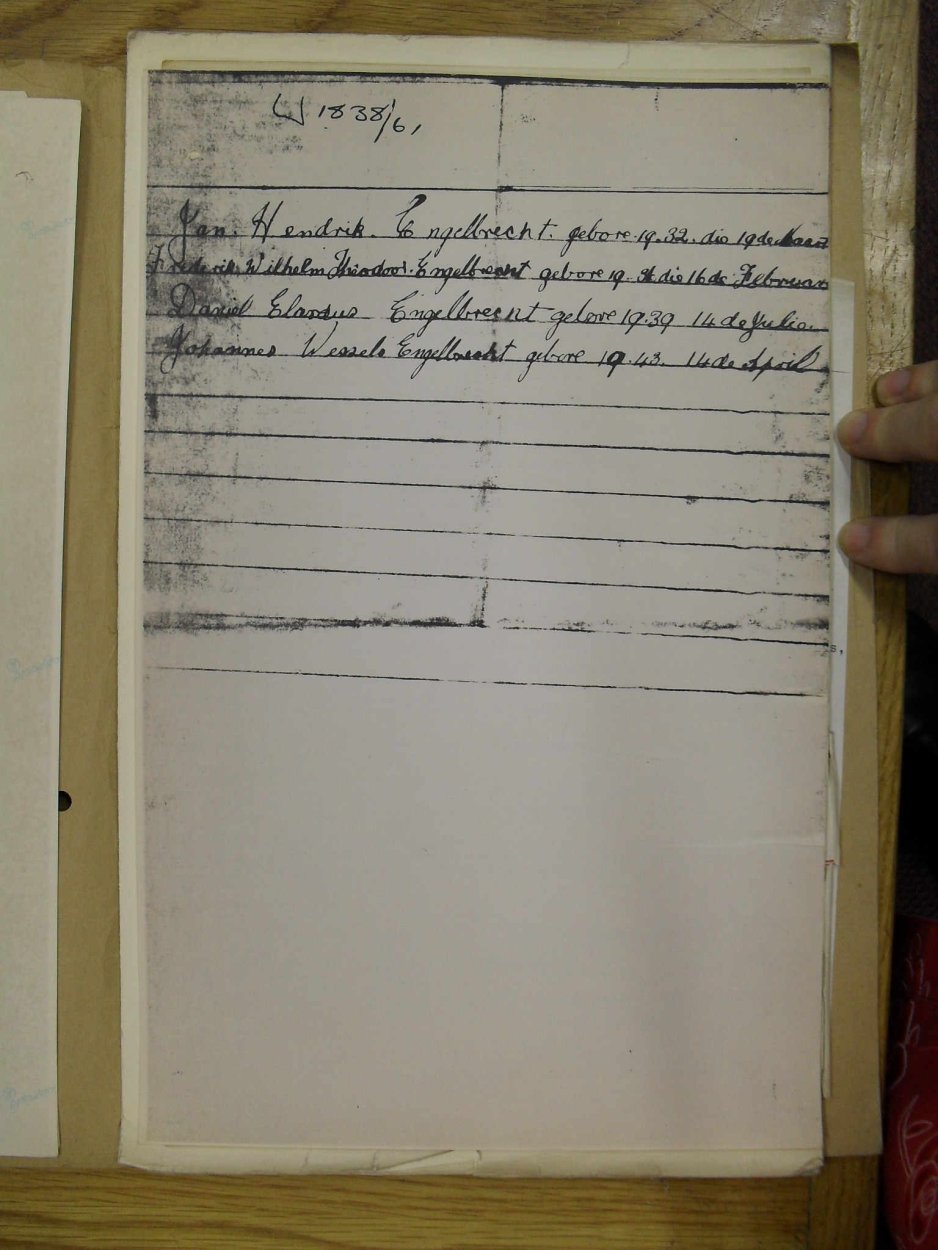 1838/61
Jan. Hendrik. Engelbrecht. gebore. 19.32. die 19de Maart
Frederik. Wilhelm Theodoor. Engelbrecht gebore 19. die 16de Februari
Daniel Elardus Engelbrecht gebore 19.39 14 de Julie
Johannes Wessels Engelbrecht gebore 19.43. 14 de April
s,